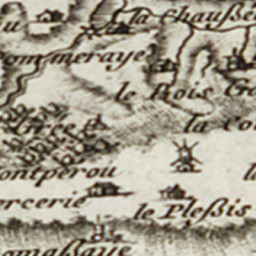 u
la Chauſſe
ommeraye
le Bois Ge
la Co
ontperou
l
ercerie
le Pleſsis
omaſsaye